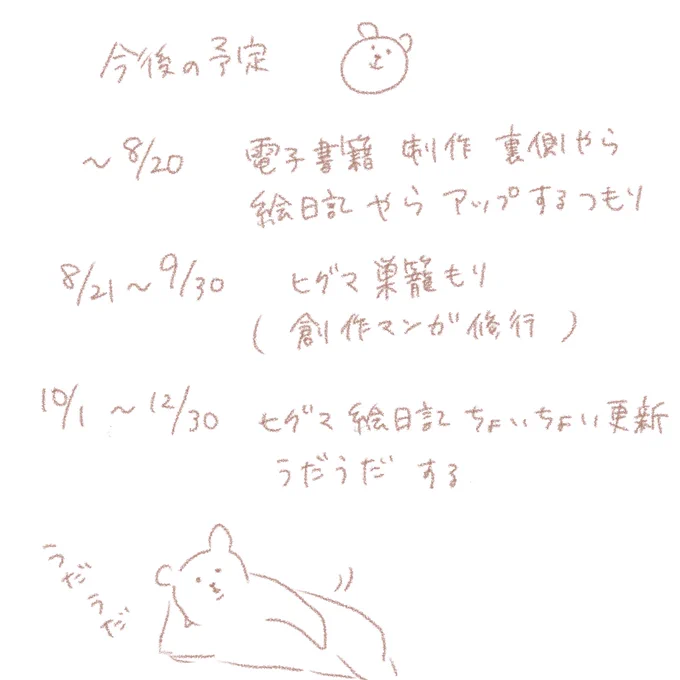 今後の予定
～8/20 電子書籍 制作 裏側やら
絵日記 やら アップするつもり
8/21～9/30 ヒグマ巣籠もり
(創作マンガ修行)
10/1～12/30 ヒグマ絵日記ちょいちょい更新
うだうだ する
うだうだ